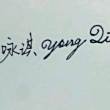 咏淇 Yong Qi